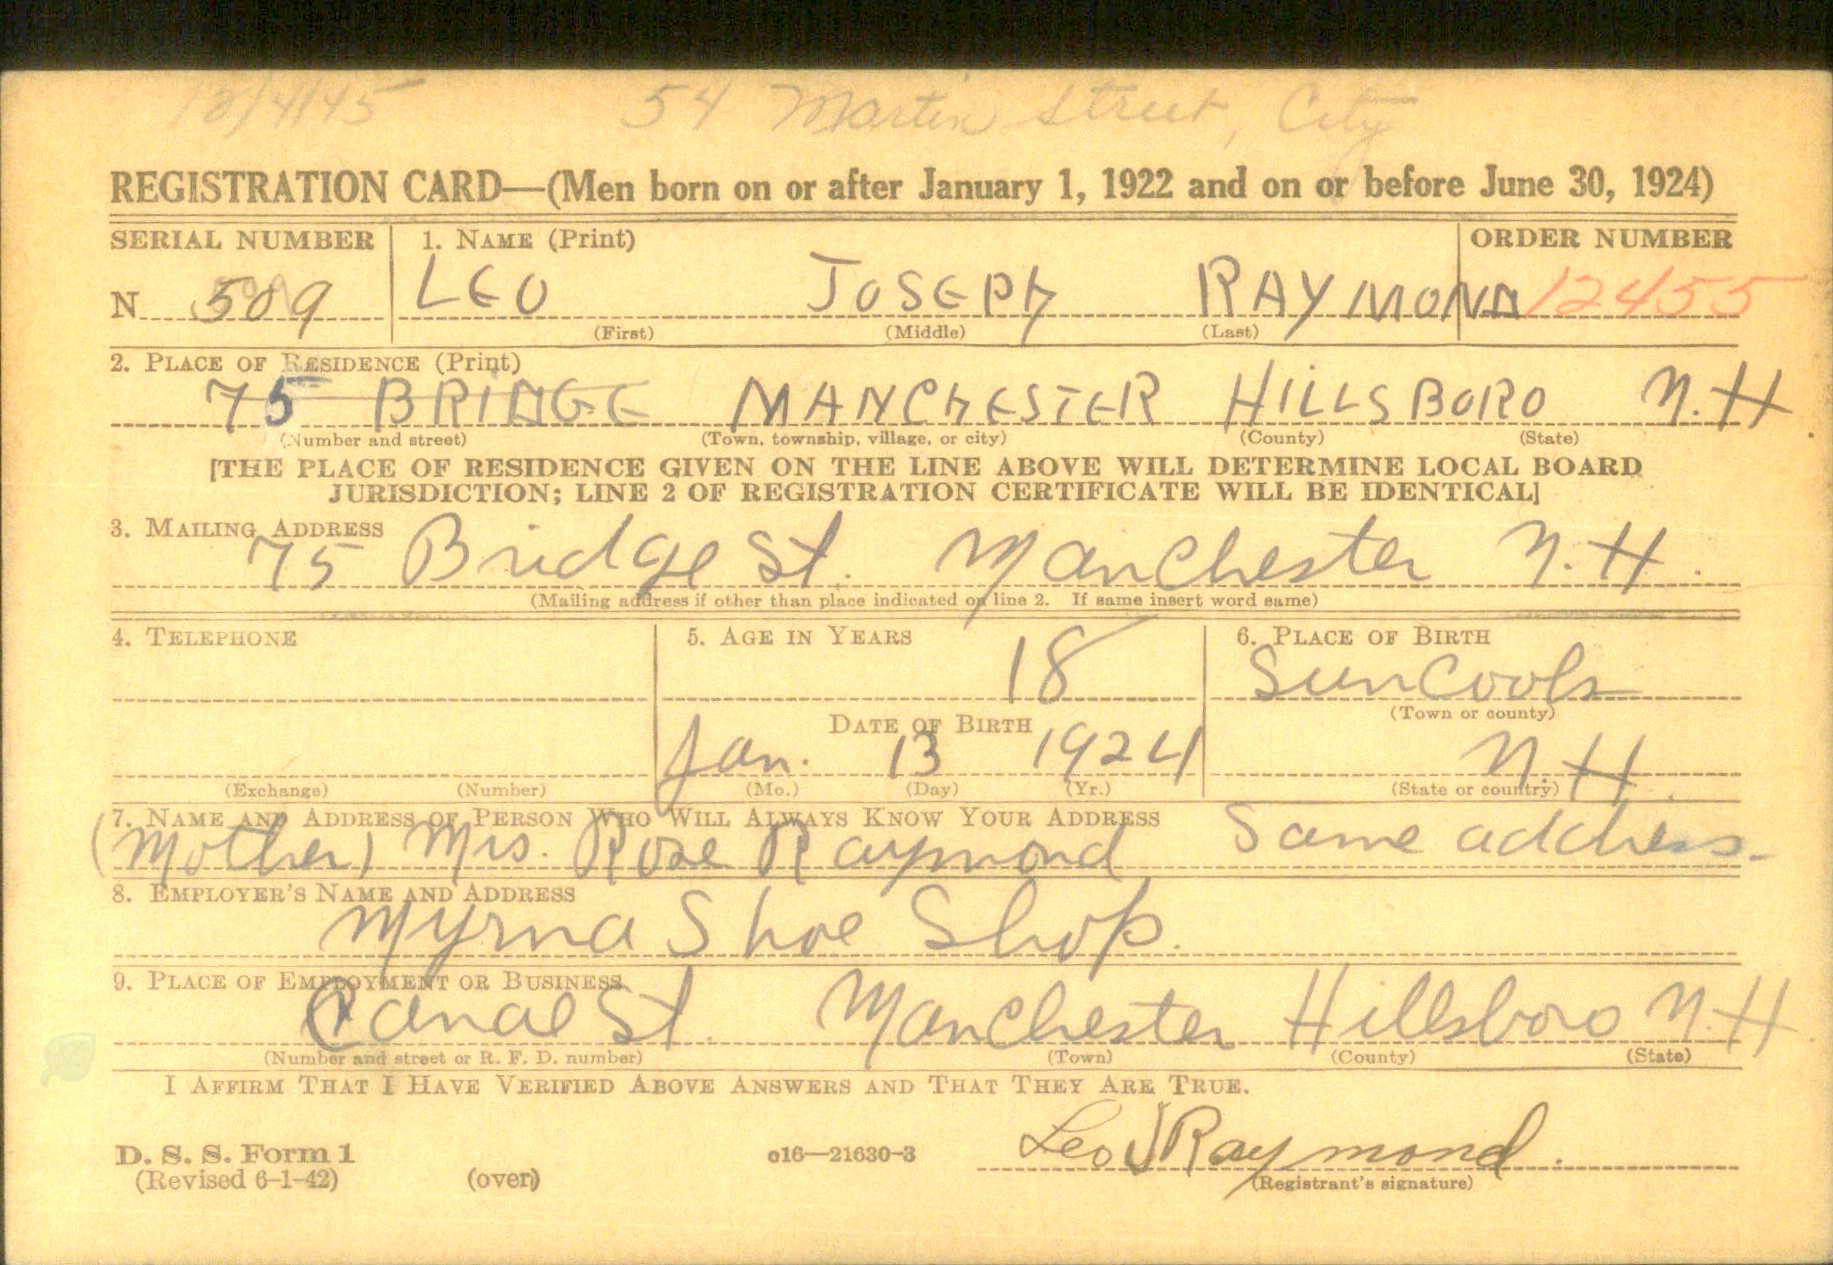 12/4/45 54 Martin Street, City
REGISTRATION CARD—(Men born on or after January 1, 1922 and on or before June 30, 1924)
SERIAL NUMBER 1. NAME (Print) ORDER NUMBER
N 509 LEO JOSEPH RAYMOND 12455
(First) (Middle) (Last)
2. PLACE OF RESIDENCE (Print)
75 BRIDGE MANCHESTER HILLSBORO N.H.
(Number and street) (Town, township, village, or city) (County) (State)
[THE PLACE OF RESIDENCE GIVEN ON THE LINE ABOVE WILL DETERMINE LOCAL BOARD
JURISDICTION; LINE 2 OF REGISTRATION CERTIFICATE WILL BE IDENTICAL]
3. MAILING ADDRESS
75 Bridge St. Manchester N.H.
(Mailing address if other than place indicated on line 2. If same insert word same)
4. TELEPHONE 5. AGE IN YEARS 6. PLACE OF BIRTH
18 SunCook
(Town or county)
DATE OF BIRTH
Jan. 13 1924 N.H.
(Exchange) (Number) (Mo.) (Day) (Yr.) (State or country)
7. NAME AND ADDRESS OF PERSON WHO WILL ALWAYS KNOW YOUR ADDRESS
(Mother) Mrs. Rose Raymond Same address.
8. EMPLOYER'S NAME AND ADDRESS
Myrna Shoe Shop.
9. PLACE OF EMPLOYMENT OR BUSINESS
Canal St. Manchester Hillsboro N.H.
(Number and street or R. F. D. number) (Town) (County) (State)
I AFFIRM THAT I HAVE VERIFIED ABOVE ANSWERS AND THAT THEY ARE TRUE.
Leo J Raymond.
D. S. S. Form 1 c16—21630-3
(Revised 6-1-42) (over) (Registrant's signature)